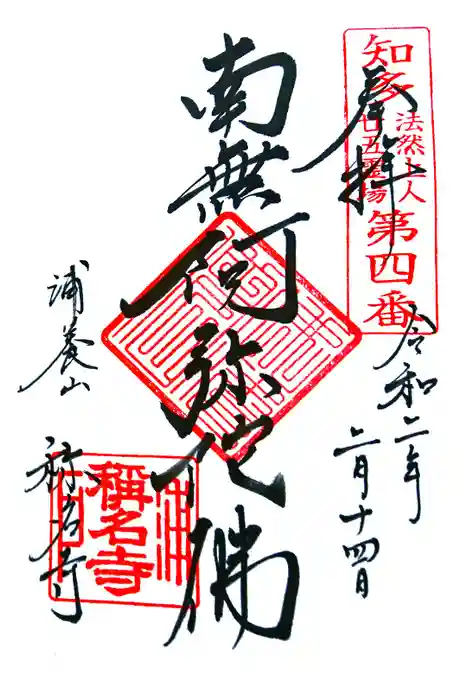 奉拝
知多
法然上人
廿五霊場
第四番
令和二年
六月十四日
南無阿弥陀佛
浦養山
称名寺
稱名寺